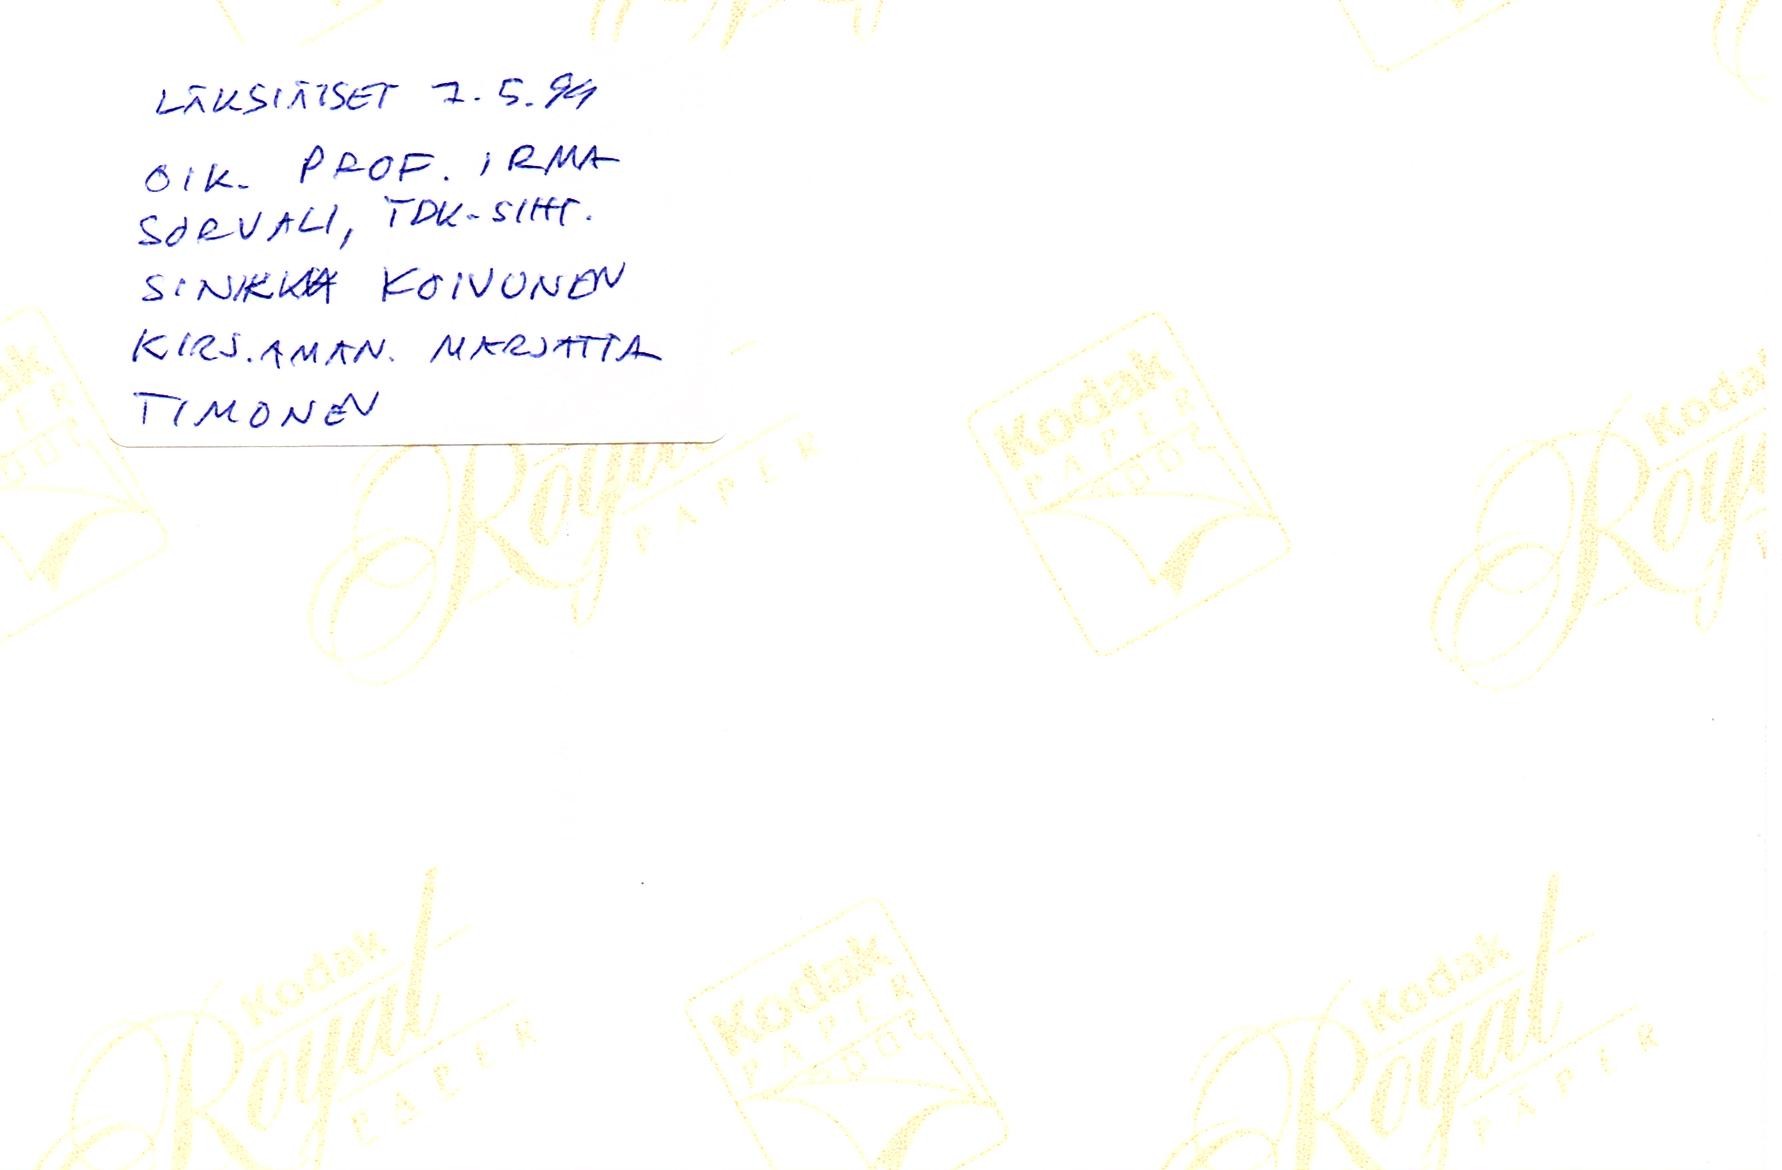 LÄKSIÄISET 7.5.94
OIK. PROF. IRMA
SORVALI, TDK-SIHT.
SINIKKA KOIVUNEN
KIRJ.AMAN. MARJATTA
TIMONEN
Kodak
PAPER
Royal
PAPER
Kodak
PAPER
Kodak
Royal
Kodak
Royal
PAPER
Kodak
PAPER
Kodak
Royal
PAPER